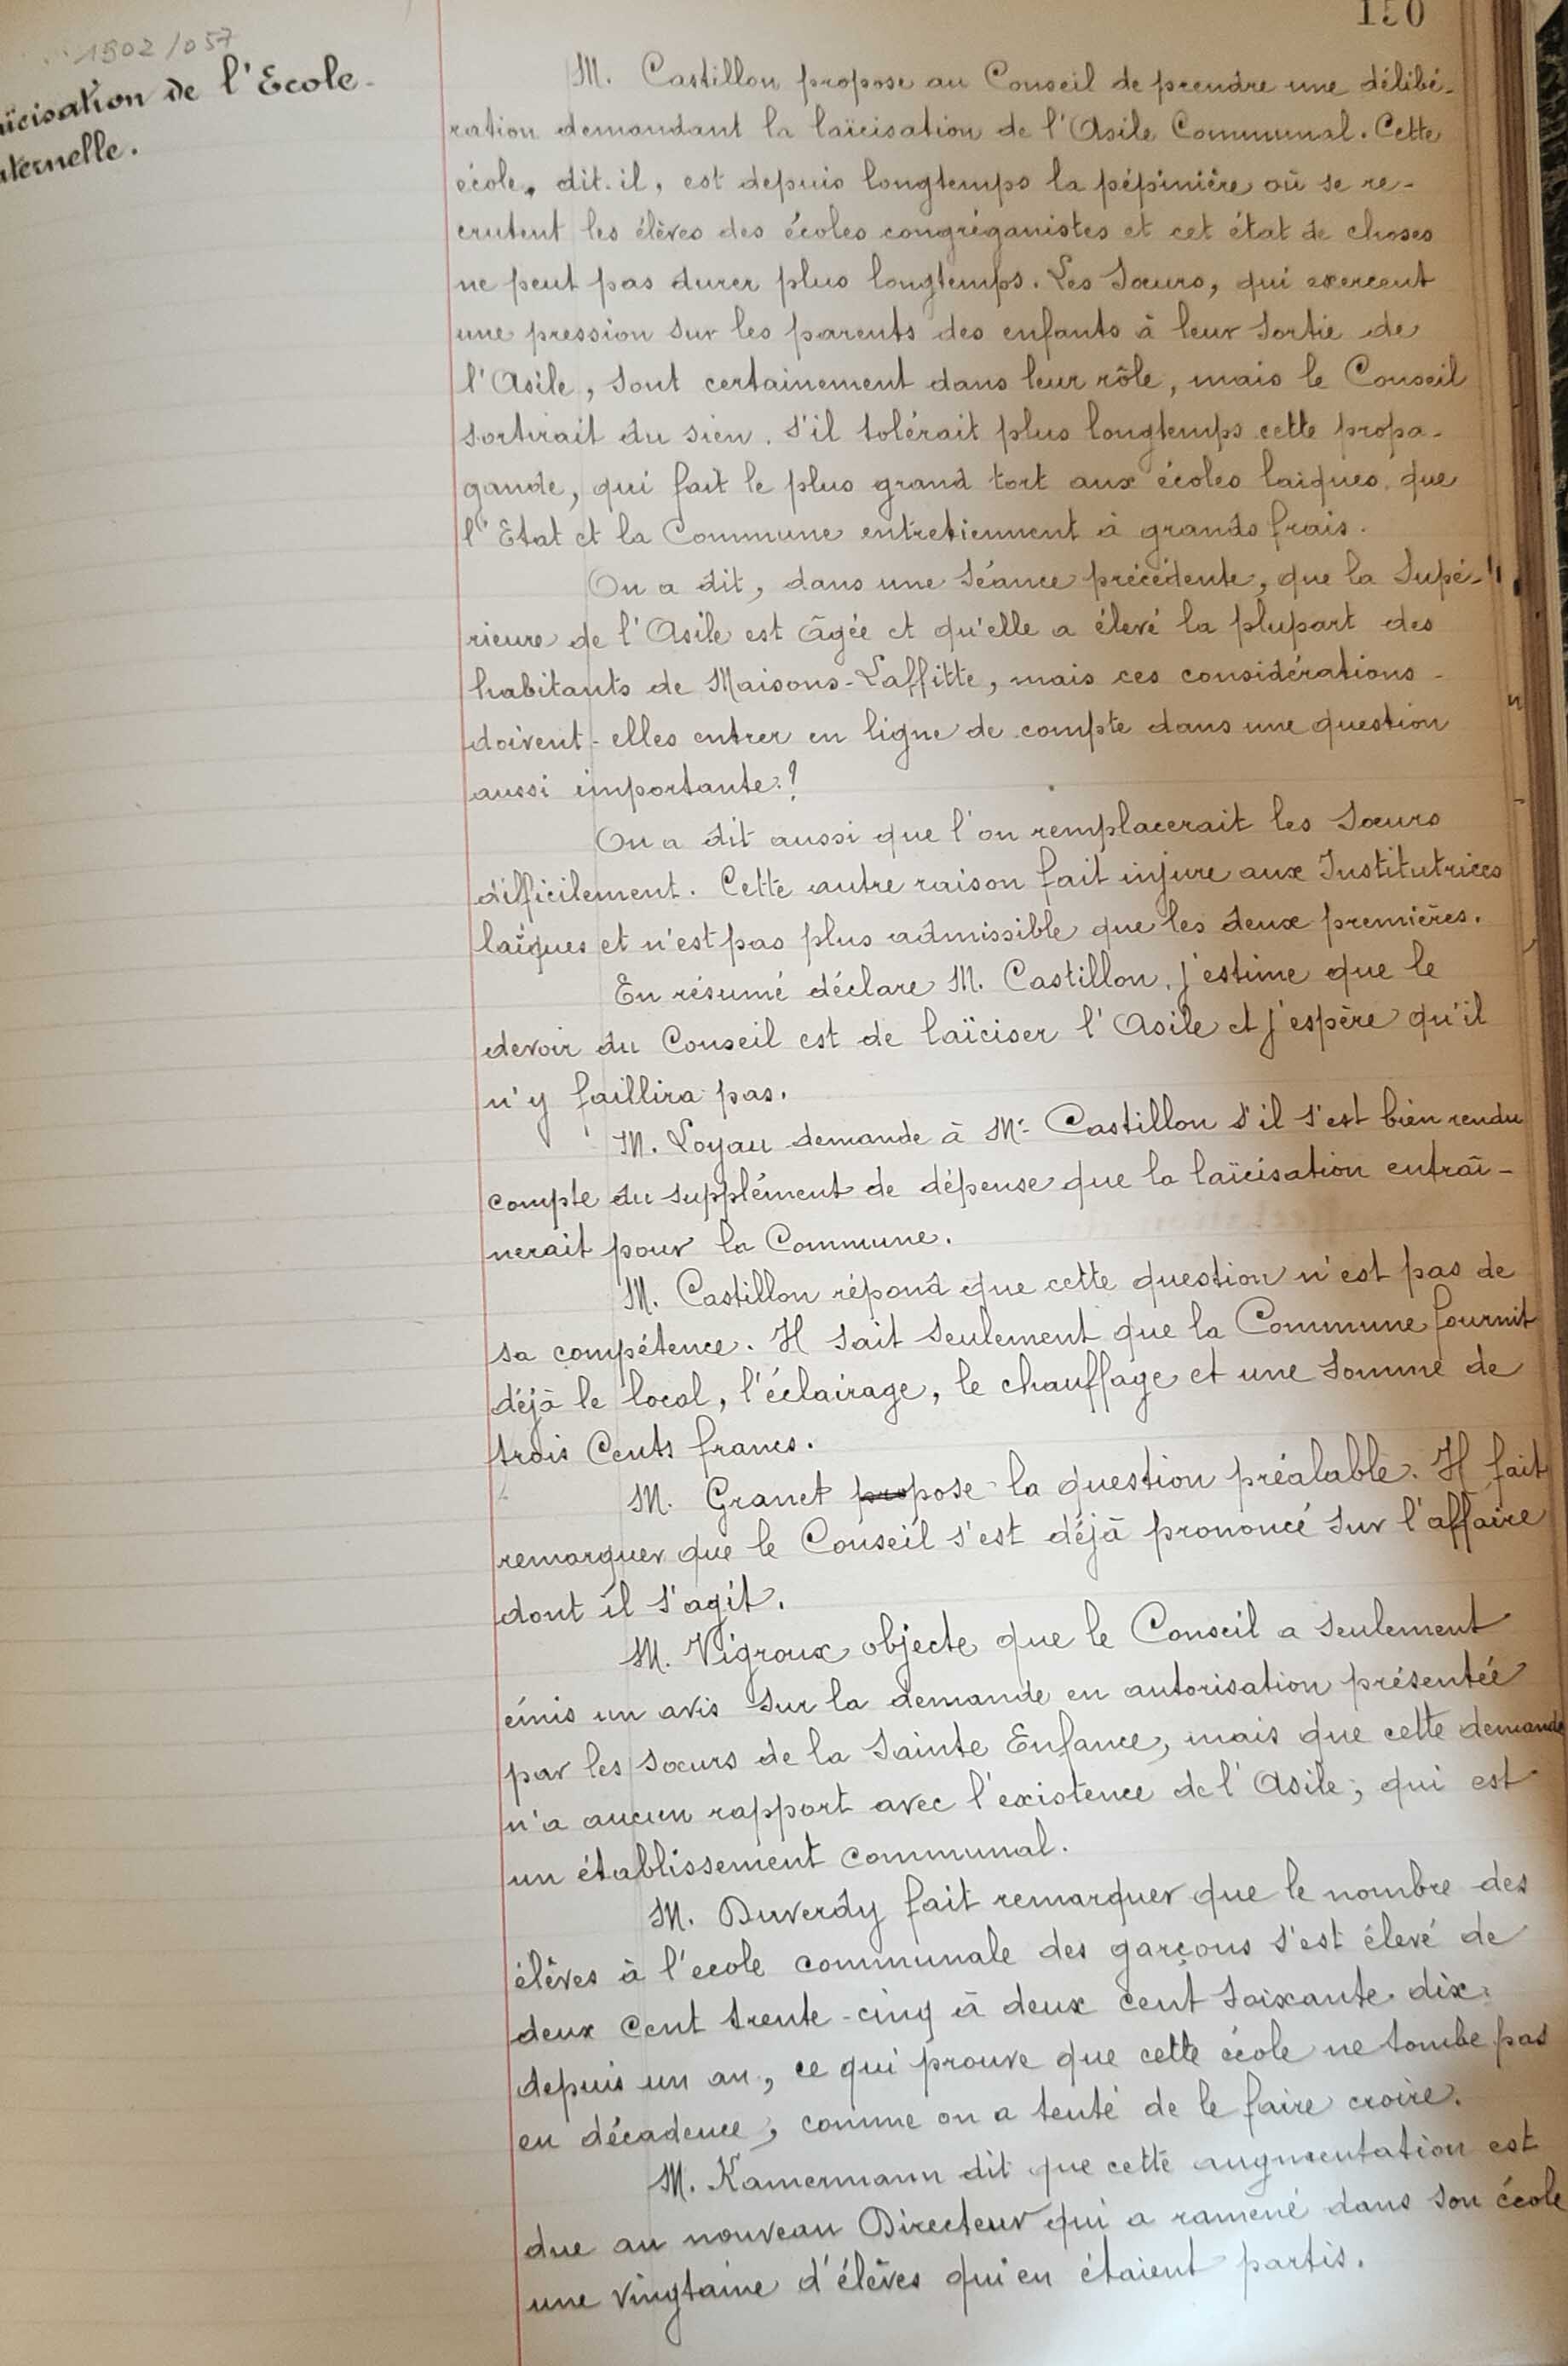 150
1902/057
aïcisation de l'Ecole
aternelle.
M. Castillon propose au Conseil de prendre une délibé-
ration demandant la laïcisation de l'Asile Communal. Cette
école, dit-il, est depuis longtemps la pépinière où se re-
crutent les élèves des écoles congréganistes et cet état de choses
ne peut pas durer plus longtemps. Les Sœurs, qui exercent
une pression sur les parents des enfants à leur sortie de
l'Asile, sont certainement dans leur rôle, mais le Conseil
sortirait du sien, s'il tolérait plus longtemps cette propa-
gande, qui fait le plus grand tort aux écoles laïques que
l'Etat et la Commune entretiennent à grands frais.
On a dit, dans une séance précédente, que la Supé-
rieure de l'Asile est âgée et qu'elle a élevé la plupart des
habitants de Maisons-Laffitte, mais ces considérations
doivent-elles entrer en ligne de compte dans une question
aussi importante?
On a dit aussi que l'on remplacerait les Sœurs
difficilement. Cette autre raison fait injure aux Institutrices
laïques et n'est pas plus admissible que les deux premières.
En résumé déclare M. Castillon, j'estime que le
devoir du Conseil est de laïciser l'Asile et j'espère qu'il
n'y faillira pas.
M. Loyau demande à Mr Castillon s'il s'est bien rendu
compte du supplément de dépense que la laïcisation entraî-
nerait pour la Commune.
M. Castillon répond que cette question n'est pas de
sa compétence. Il sait seulement que la Commune fournit
déjà le local, l'éclairage, le chauffage et une somme de
trois Cents francs.
M. Granet propose la question préalable. Il fait
remarquer que le Conseil s'est déjà prononcé sur l'affaire
dont il s'agit.
M. Vigroux objecte que le Conseil a seulement
émis un avis sur la demande en autorisation présentée
par les sœurs de la Sainte Enfance, mais que cette demande
n'a aucun rapport avec l'existence de l'Asile, qui est
un établissement communal.
M. Duverdy fait remarquer que le nombre des
élèves à l'ecole communale des garçons s'est élevé de
deux Cent trente-cinq à deux cent soixante dix
depuis un an, ce qui prouve que cette école ne tombe pas
en décadence, comme on a tenté de le faire croire.
M. Kamermann dit que cette augmentation est
due au nouveau Directeur qui a ramené dans son école
une vingtaine d'élèves qui en étaient partis.